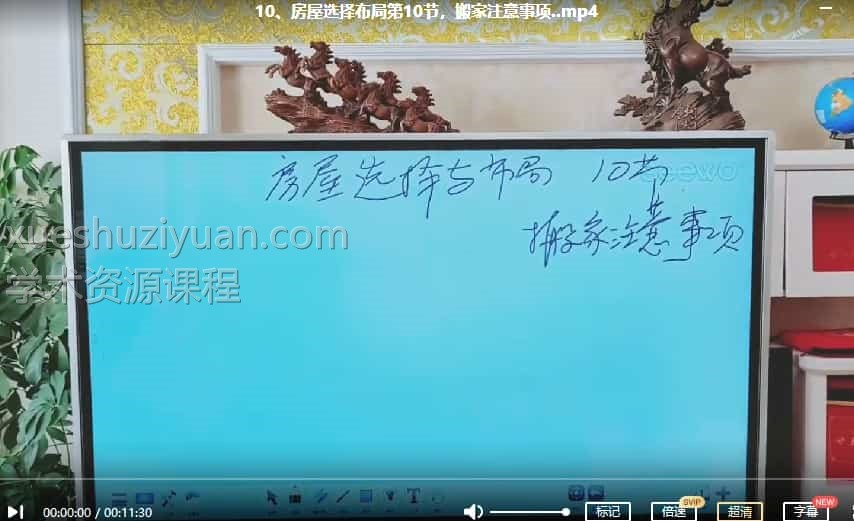 10、房屋选择布局第10节，搬家注意事项..mp4
房屋选择与布局 10节
seewo
搬家注意事项
xueshuziyuan.com
学术资源课程
00:00:00 / 00:11:30
标记
倍速
SVIP
超清
字幕
NEW